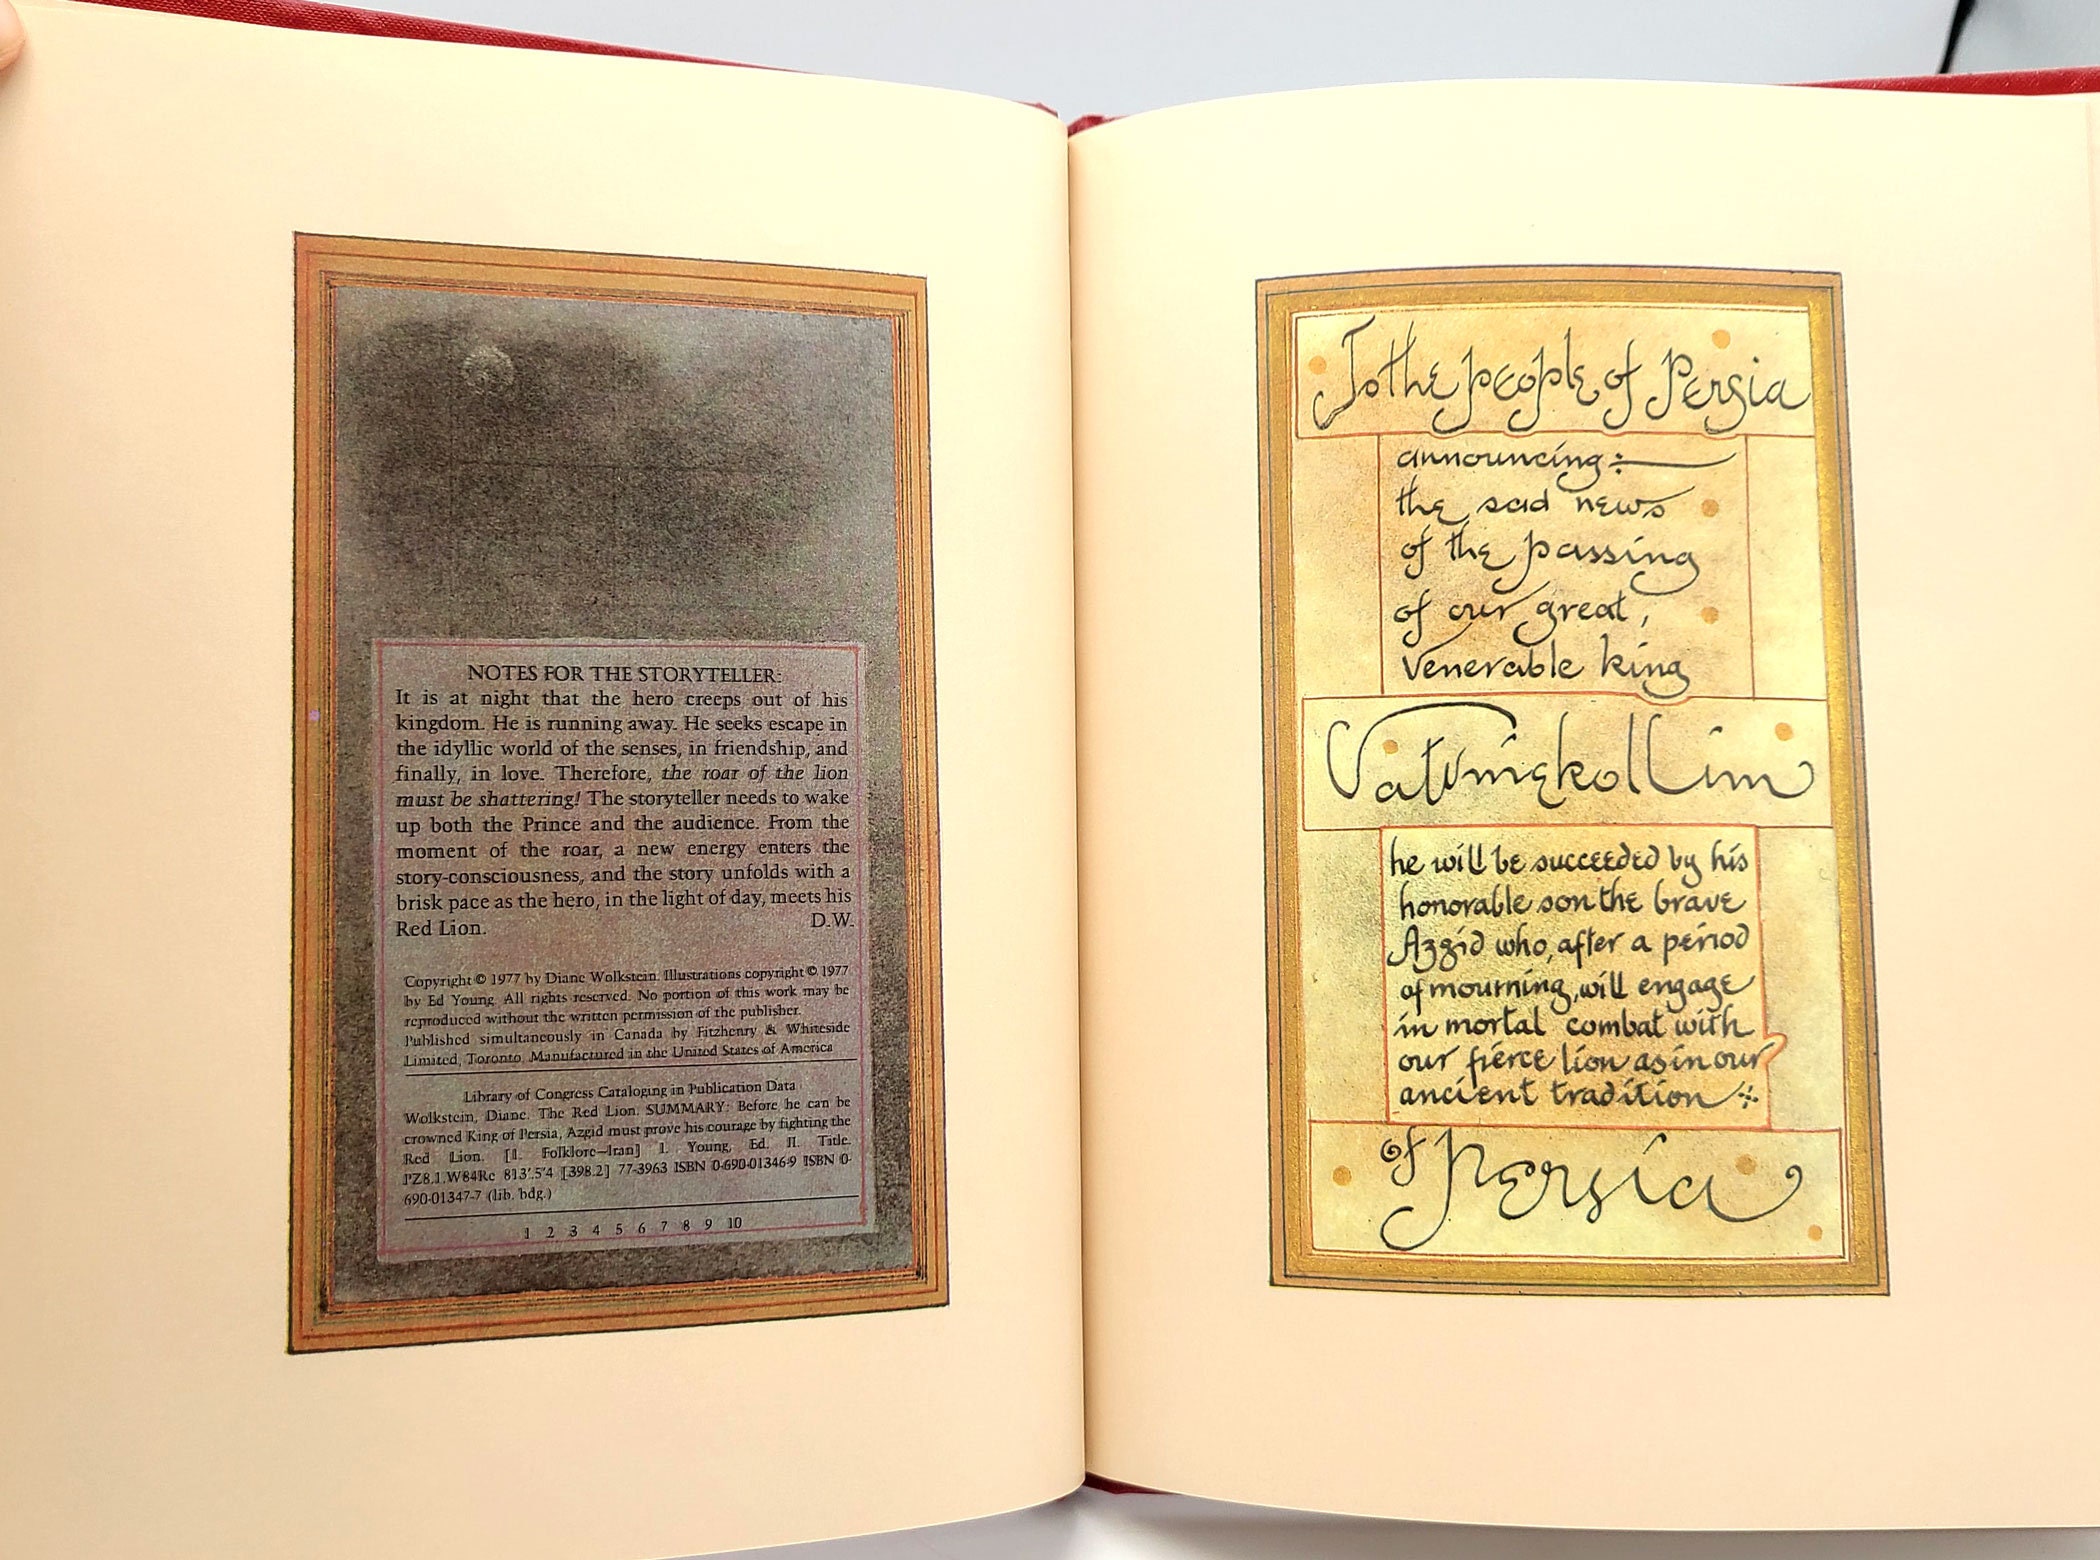 NOTES FOR THE STORYTELLER:
It is at night that the hero creeps out of his
kingdom. He is running away. He seeks escape in
the idyllic world of the senses, in friendship, and
finally, in love. Therefore, the roar of the lion
must be shattering! The storyteller needs to wake
up both the Prince and the audience. From the
moment of the roar, a new energy enters the
story-consciousness, and the story unfolds with a
brisk pace as the hero, in the light of day, meets his
Red Lion. D.W.
Copyright © 1977 by Diane Wolkstein. Illustrations copyright © 1977
by Ed Young. All rights reserved. No portion of this work may be
reproduced without the written permission of the publisher.
Published simultaneously in Canada by Fitzhenry & Whiteside
Limited, Toronto. Manufactured in the United States of America
Library of Congress Cataloging in Publication Data
Wolkstein, Diane. The Red Lion. SUMMARY: Before he can be
crowned King of Persia, Azgid must prove his courage by fighting the
Red Lion. [1. Folklore—Iran] I. Young, Ed. II. Title.
PZ8.1.W84Re 813'.5'4 [398.2] 77-3963 ISBN 0-690-01346-9 ISBN 0-
690-01347-7 (lib. bdg.)
1 2 3 4 5 6 7 8 9 10
To the people of Persia
announcing:
the sad news
of the passing
of our great,
venerable king
he will be succeeded by his
honorable son the brave
Azgid who, after a period
of mourning, will engage
in mortal combat with
our fierce lion as in our
ancient tradition
of Persia